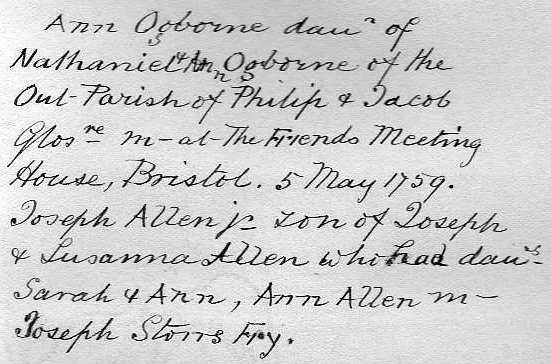 Ann Ogborne daur of
Nathaniel & Ann Ogborne of the
Out-Parish of Philip & Jacob
Glosre m- at The Friends Meeting
House, Bristol. 5 May 1759.
Joseph Allen jr son of Joseph
& Susanna Allen who had daurs-
Sarah & Ann, Ann Allen m-
Joseph Storrs Fry.